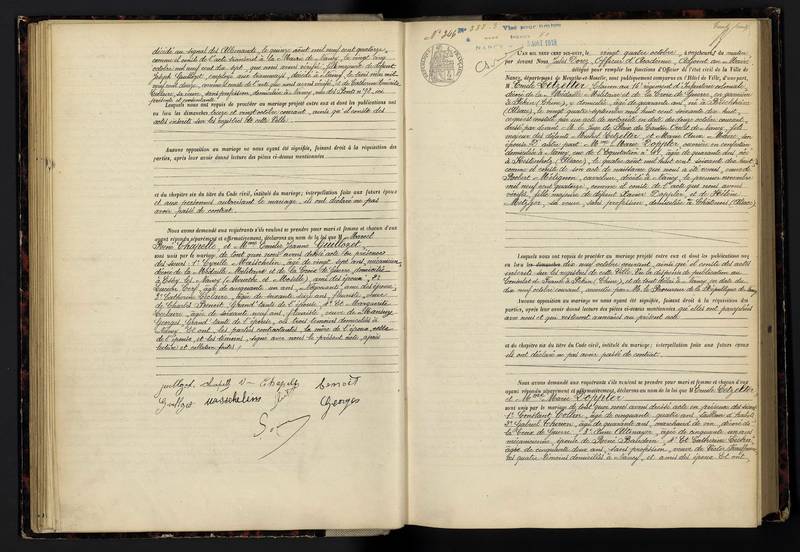 décédé au signal des Allemands, le quinze août mil neuf cent quatorze,
comme il conste de l'acte transcrit à la Mairie de Nancy, le vingt cinq
octobre mil neuf cent dix sept, que nous avons vérifié, fille majeure de défunt
Joseph Guillozet, employé aux tramways, décédé à Nancy, le
mil neuf cent, comme il conste de l'acte que nous avons vérifié, et de Catherine
sa veuve, sans profession, domiciliée à Nancy, rue des Ponts n° 72, ici
présente et consentante
Lesquels nous ont requis de procéder au mariage projeté entre eux et dont les publications ont
eu lieu les dimanches treize et vingt octobre courant, ainsi qu'il conste des
actes inscrits sur les registres de cette Ville
Aucune opposition au mariage ne nous ayant été signifiée, faisant droit à la réquisition des
parties, après leur avoir donné lecture des pièces ci-dessus mentionnées
et du chapitre six du titre du Code civil, intitulé du mariage; interpellation faite aux futurs époux
et aux personnes autorisant le mariage, ils ont déclaré ne pas
avoir passé de contrat.
Nous avons demandé aux requérants s'ils veulent se prendre pour mari et femme et chacun d'eux
ayant répondu séparément et affirmativement, déclarons au nom de la loi que M Marcel
Chapelle, et Mme Emilie Jeanne Guillozet
sont unis par le mariage de tout quoi nous avons dressé acte en présence
des sieurs 1° Cyrille Masschelin, âgé de vingt sept ans, mécanicien,
décoré de la Médaille Militaire et de la Croix de Guerre, domicilié
à Essey les Nancy (Meurthe et Moselle), ami des époux; 2°
Cerf, âgé de cinquante un ans, Négociant, ami des époux;
3° Catherine Leclaire, âgée de soixante six ans, fleuriste, veuve
de Charles Benoit, Grand'tante de l'épouse; 4° Et Marguerite
Leclaire, âgée de soixante neuf ans, fleuriste, veuve de
Georges, Grand'tante de l'épouse, ces trois témoins domiciliés à
Nancy. Et ont les parties contractantes, la mère de l'épouse, celle
de l'époux, et les témoins, signé avec nous le présent acte, après
lecture et collation faites;
Guillozet Chapelle Vve Chapelle Benoit
Guillozet Masschelin Cerf Georges
N° 246
Visé pour timbre
NANCY
1918
L'an mil neuf cent dix-huit, le vingt quatre octobre, à onze heures du matin
par devant Nous Jules Dorez, Officier d'Académie, Adjoint au Maire
délégué pour remplir les fonctions d'Officier de l'état civil de la Ville de
Nancy, département de Meurthe-et-Moselle, sont publiquement comparus en l'Hôtel de Ville, d'une part,
M Emile Etzeller, Colonna au 16e régiment d'Infanterie coloniale,
décoré de la Médaille Militaire et de la Croix de Guerre, en garnison
à Pékin (Chine), y domicilié, âgé de quarante ans, né à
(Alsace), le vingt quatre septembre mil huit cent soixante dix huit,
ainsi qu'il conste par un acte de notoriété en date du douze octobre courant,
dressé par devant M. le Juge de Paix du Canton Ouest de Nancy, fils
majeur des défunts Michel Etzeller, et Marie Anne
époux. D'autre part Mme Marie Doppler, ouvrière en confection
domiciliée à Nancy, rue de l'Equitation n° 48, âgée de quarante ans, née
à (Alsace), le quatre août mil huit cent soixante dix huit,
comme il conste de son acte de naissance que nous a été remis, veuve de
Robert Métignon, cavalier, décédé à Nancy, le premier novembre
mil neuf cent quatorze, comme il conste de l'acte que nous avons
vérifié, fille majeure de défunt Xavier Doppler, et de Hélène
Metzger, sa veuve, sans profession, domiciliée à Châtenois (Alsace)
Lesquels nous ont requis de procéder au mariage projeté entre eux et dont les publications ont
eu lieu les dimanches dix neuf octobre courant, ainsi qu'il conste des actes
inscrits sur les registres de cette Ville. Vu la dispense de publication au
Consulat de France à Pékin (Chine), et de tout délai à Nancy, en date du
dix neuf octobre courant, accordée par M. le Procureur de la République de Nancy
Aucune opposition au mariage ne nous ayant été signifiée, faisant droit à la réquisition des
parties, après leur avoir donné lecture des pièces ci-dessus mentionnées qu'elles ont paraphées
avec nous et qui resteront annexées au présent acte
et du chapitre six du titre du Code civil, intitulé du mariage; interpellation faite aux futurs époux
ils ont déclaré ne pas avoir passé de contrat.
Nous avons demandé aux requérants s'ils veulent se prendre pour mari et femme et chacun d'eux
ayant répondu séparément et affirmativement, déclarons au nom de la loi que M Emile Etzeller
et Mme Marie Doppler
sont unis par le mariage de tout quoi nous avons dressé acte en présence des sieurs
1° Constant Collin, âgé de cinquante quatre ans, tailleur d'habits
2° Gabriel Thenon, âgé de quarante ans, marchand de vin, décoré de
la Croix de Guerre, 3° Anne Altmayer, âgée de cinquante un ans,
mécanicienne, épouse de René Baudoin, 4° Et Catherine
âgée de cinquante deux ans, sans profession, veuve de Victor
les quatre témoins domiciliés à Nancy, et amis des époux Et ont,